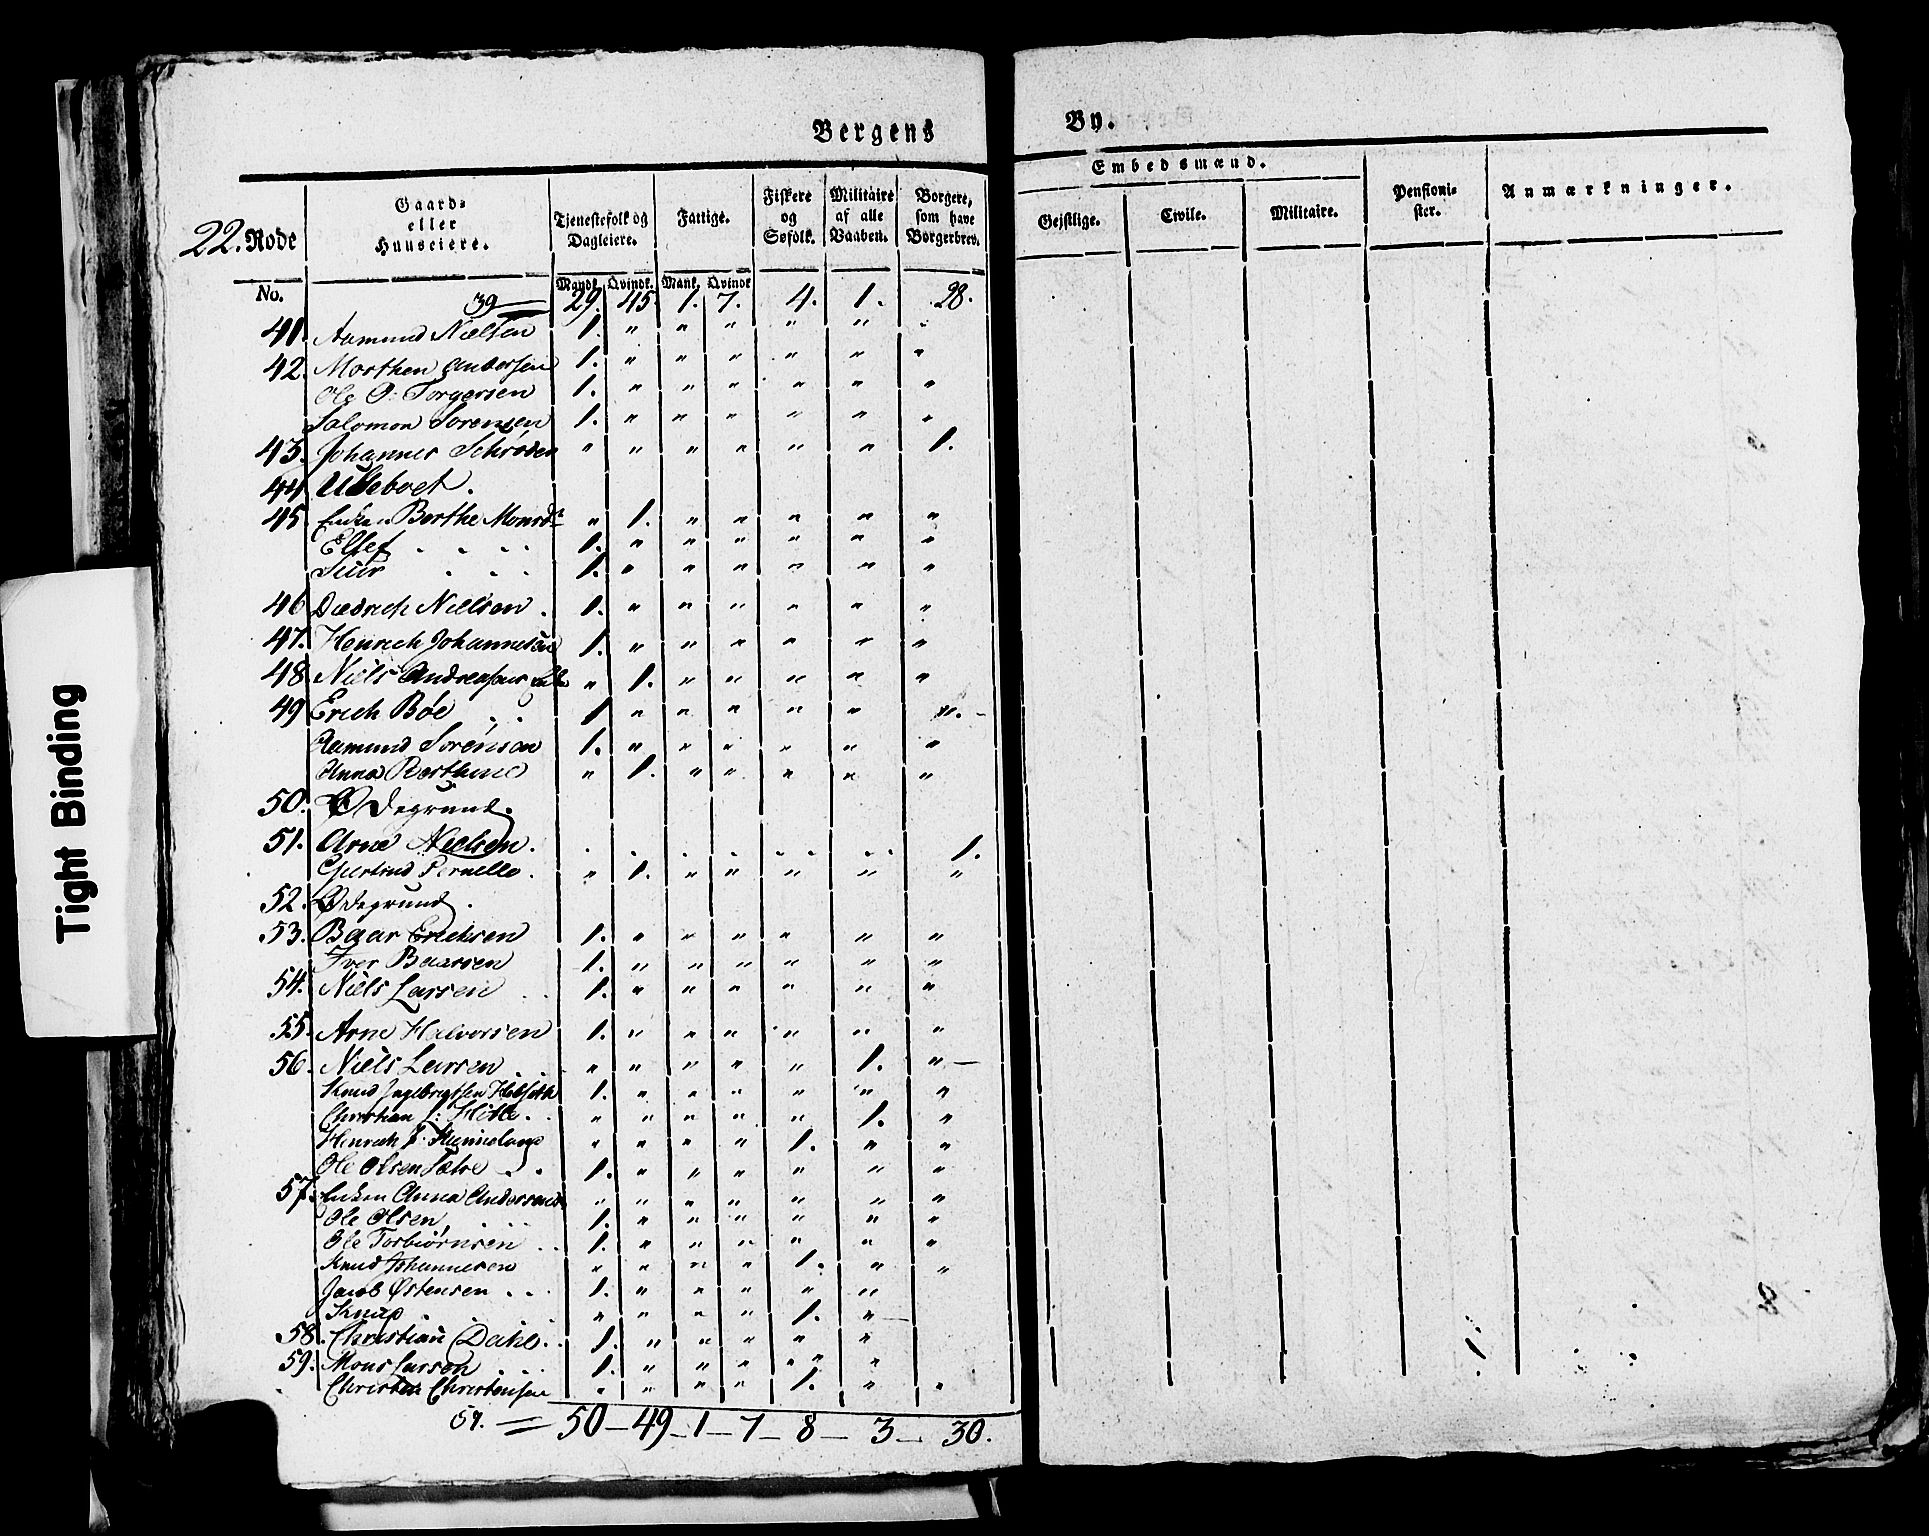 Bergens By.
22. Rode
No.
Gaard-
eller
Huuseiere.
Tjenestefolk og
Dagleiere.
Mandk. Qvindk.
Fattige.
Mank. Qvindk
Fiskere
og
Søfolk.
Militaire
af alle
Vaaben.
Borgere,
som have
Borgerbrev.
Embedsmænd.
Geistlige. Civile. Militaire.
Pensioni-
ster.
Anmærkninger.
39 29. 45 1. 7. 4. 1. 28.
41. Aamund Nielsen 1. " " " " " "
42. Morthen Andersen 1. " " " " " "
Ole O: Torgersen 1. " " " " " "
Salomon Sørensen 1. " " " " " "
43. Johannes Schrøder " " " " " " 1.
44
45 Enken Berthe Monsd " 1. " " " " "
Ellef 1. " " " " " "
Siur 1. " " " " " "
46 Diedrich Nielsen 1. " " " " " "
47. Henrich Johannesen 1. " " " " " "
48 Niels Andreasens " 1. " " " " "
49 Erich Bøe 1 " " " " " "
Aamund Sørensen 1. " " " " " "
Anna Berthine " 1. " " " " "
50. Ødegrund.
51. Arne Nielsen. 1.
Giertrud Pernelle. " 1. " " " " "
52. Ødegrund.
53. Baar Erichsen 1. " " " " " "
Iver Baarsen 1. " " " " " "
54. Niels Larsen 1. " " " " " "
55. Arne Halvorsen 1. " " " " " "
56. Niels Larsen " " " " " 1. "
Knud Ingebrigtsen 1. " " " " " "
Christian " " " " " 1. "
Henrich " " " " 1. " "
Ole Olsen 1. " " " " " "
57. Enken Anna Andersens " " " " " " "
Ole Olsen 1. " " " " " "
Ole Torbiørnsen 1. " " " " " "
Knud Johannesen " " " " 1. " "
Jacob Østensen 1. " " " " "
Knap " " " " 1. "
58. Christian Dahl 1. " " " " "
59. Mons Larsen 1. " " " " "
Christen Christensen " " " " 1. " "
57. 50 – 49 – 1 – 7 – 8 – 3 – 30.
Tight Binding